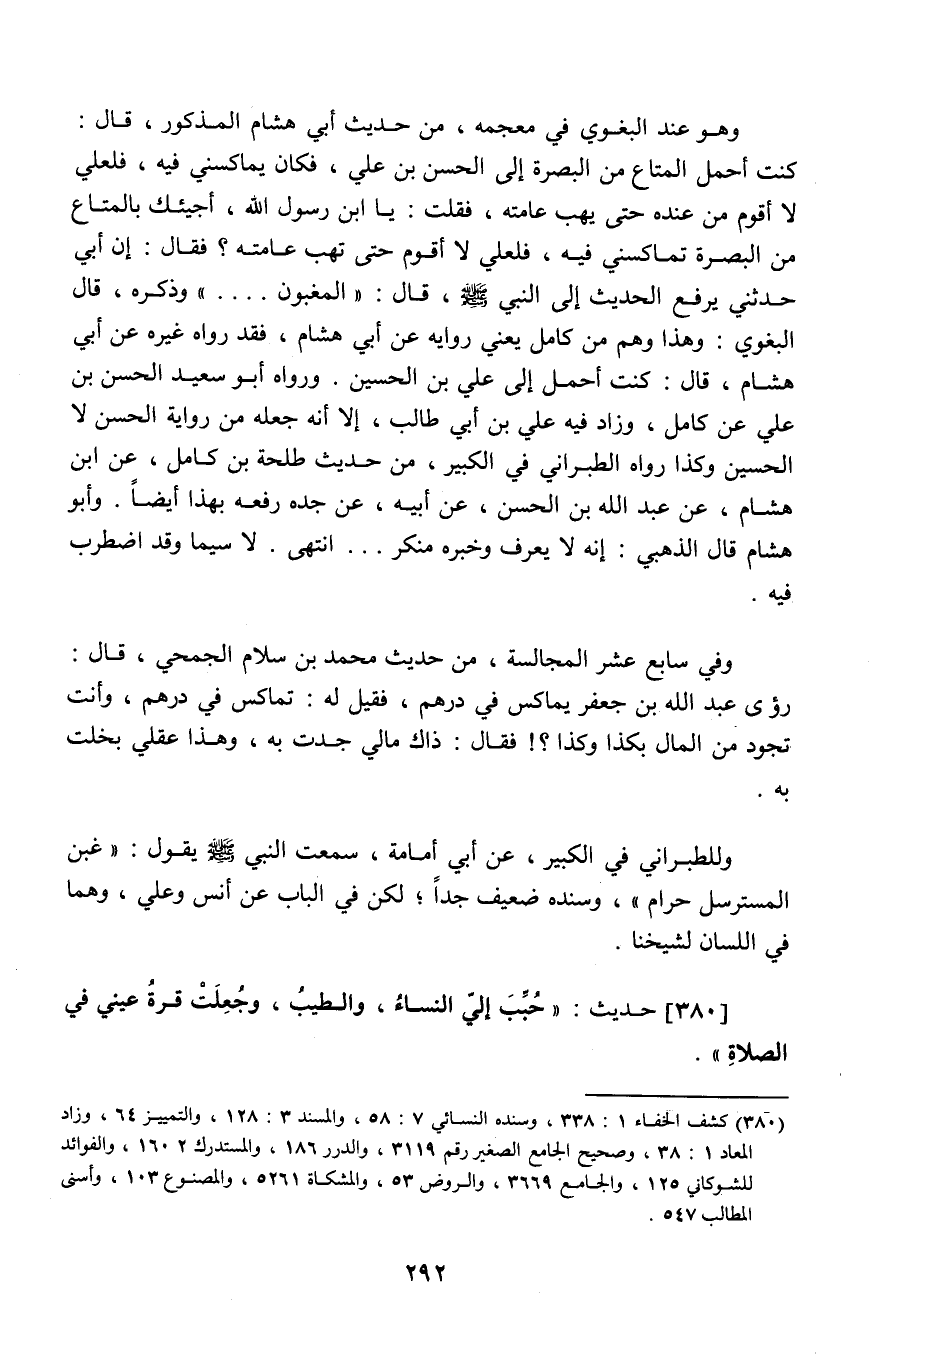 وهو عند البغوي في معجمه ، من حديث أبي هشام المذكور ، قال :
كنت أحمل المتاع من البصرة إلى الحسن بن علي ، فكان يماكسني فيه ، فلعلي
لا أقوم من عنده حتى يهب عامته ، فقلت : يا ابن رسول الله ، أجيئك بالمتاع
من البصرة تماكسني فيه ، فلعلي لا أقوم حتى تهب عامته ؟ فقال : إن أبي
حدثني يرفع الحديث إلى النبي ﷺ ، قال : « المغبون .... » وذكره ، قال
البغوي : وهذا وهم من كامل يعني روايه عن أبي هشام ، فقد رواه غيره عن أبي
هشام ، قال : كنت أحمل إلى علي بن الحسين . ورواه أبو سعيد الحسن بن
علي عن كامل ، وزاد فيه علي بن أبي طالب ، إلا أنه جعله من رواية الحسن لا
الحسين وكذا رواه الطبراني في الكبير ، من حديث طلحة بن كامل ، عن ابن
هشام ، عن عبد الله بن الحسن ، عن أبيه ، عن جده رفعه بهذا أيضاً . وأبو
هشام قال الذهبي : إنه لا يعرف وخبره منكر ... انتهى . لا سيما وقد اضطرب
فيه .
وفي سابع عشر المجالسة ، من حديث محمد بن سلام الجمحي ، قال :
رؤى عبد الله بن جعفر يماكس في درهم ، فقيل له : تماكس في درهم ، وأنت
تجود من المال بكذا وكذا ؟! فقال : ذاك مالي جدت به ، وهذا عقلي بخلت
به .
وللطبراني في الكبير ، عن أبي أمامة ، سمعت النبي ﷺ يقول : « غبن
المسترسل حرام » ، وسنده ضعيف جداً ؛ لكن في الباب عن أنس وعلي ، وهما
في اللسان لشيخنا .
[٣٨٠] حديث : « حُبِّبَ إليّ النساءُ ، والطيبُ ، وجُعِلَتْ قرةُ عيني في
الصلاةِ » .
(٣٨٠) كشف الخفاء ١ : ٣٣٨ ، وسنده النسائي ٧ : ٥٨ ، والمسند ٣ : ١٢٨ ، والتمييز ٦٤ ، وزاد
المعاد ١ : ٣٨ ، وصحيح الجامع الصغير رقم ٣١١٩ ، والدرر ١٨٦ ، والمستدرك ٢ ١٦٠ ، والفوائد
للشوكاني ١٢٥ ، والجامع ٣٦٦٩ ، والروض ٥٣ ، والمشكاة ٥٢٦١ ، والمصنوع ١٠٣ ، وأسنى
المطالب ٥٤٧ .
٢٩٢